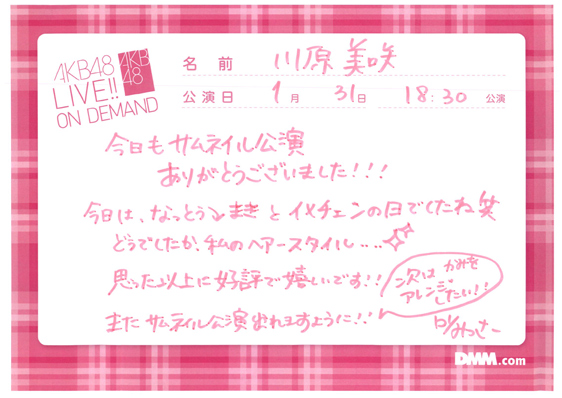 AKB48
LIVE!!
ON DEMAND
AKB
48
名 前 川原美咲
公演日 1月 31日 18:30 公演
今日もサムネイル公演
ありがとうございました!!!
今日は、なっとうまきとイメチェンの日でしたね笑
どうでしたか、私のヘアースタイル....
思った以上に好評で嬉しいです!!
次は かみを
アレンジ
したい!!
またサムネイル公演出れますように!!
by みっきー
DMM.com